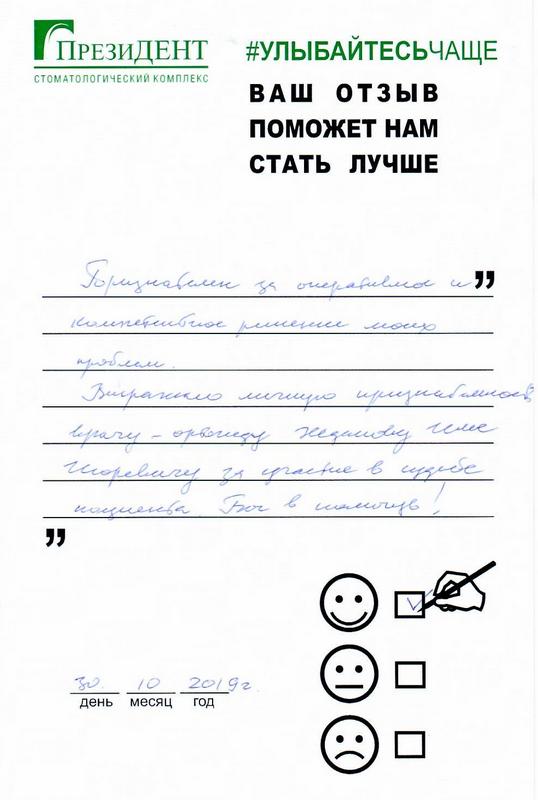 ПРЕЗИДЕНТ
СТОМАТОЛОГИЧЕСКИЙ КОМПЛЕКС
#УЛЫБАЙТЕСЬЧАЩЕ
ВАШ ОТЗЫВ
ПОМОЖЕТ НАМ
СТАТЬ ЛУЧШЕ
Признателен за оперативное и
компетентное решение моих
проблем.
Выражаю личную признательность
врачу-ортопеду Илье
Игоревичу за участие в судьбе
пациента. Бог в помощь!
30. 10 2019г.
день месяц год